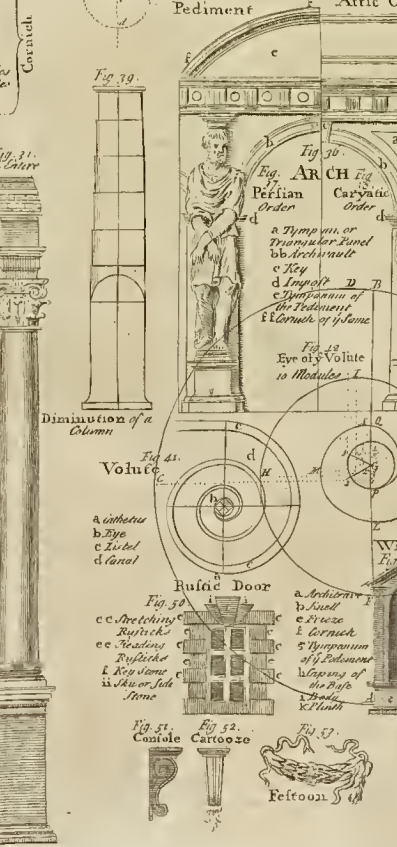 Pediment
Attic O
Cornich
Fig 39.
Fig. 36.
ARCH
Fig.
37.
Perſian
Order
Fig
Caryatic
Order
a Tympan. or
Triangular Panel
bb Archivault
c Key
d Impoſt
e Tympanum of
the Pediment
ff Cornich of ẏ Same
Diminution of a
Column
Eye of ẏ Volute
10 Modules
Fig 41.
Volute
a Cathetus
b Eye
c Liſtel
d Canal
Ruſtic Door
Fig. 50
cc Stretching
Ruſticks
ee Heading
Ruſticks
f Key Stone
ii Sku or Side
Stone
a Architrave
e Freeze
f Cornich
Tympanum
of ẏ Pediment
h Caping of
the Base
i Body
k Plinth
Fig. 51.
Conſole
Fig 52.
Cartooze
Fig. 53.
Feſtoon